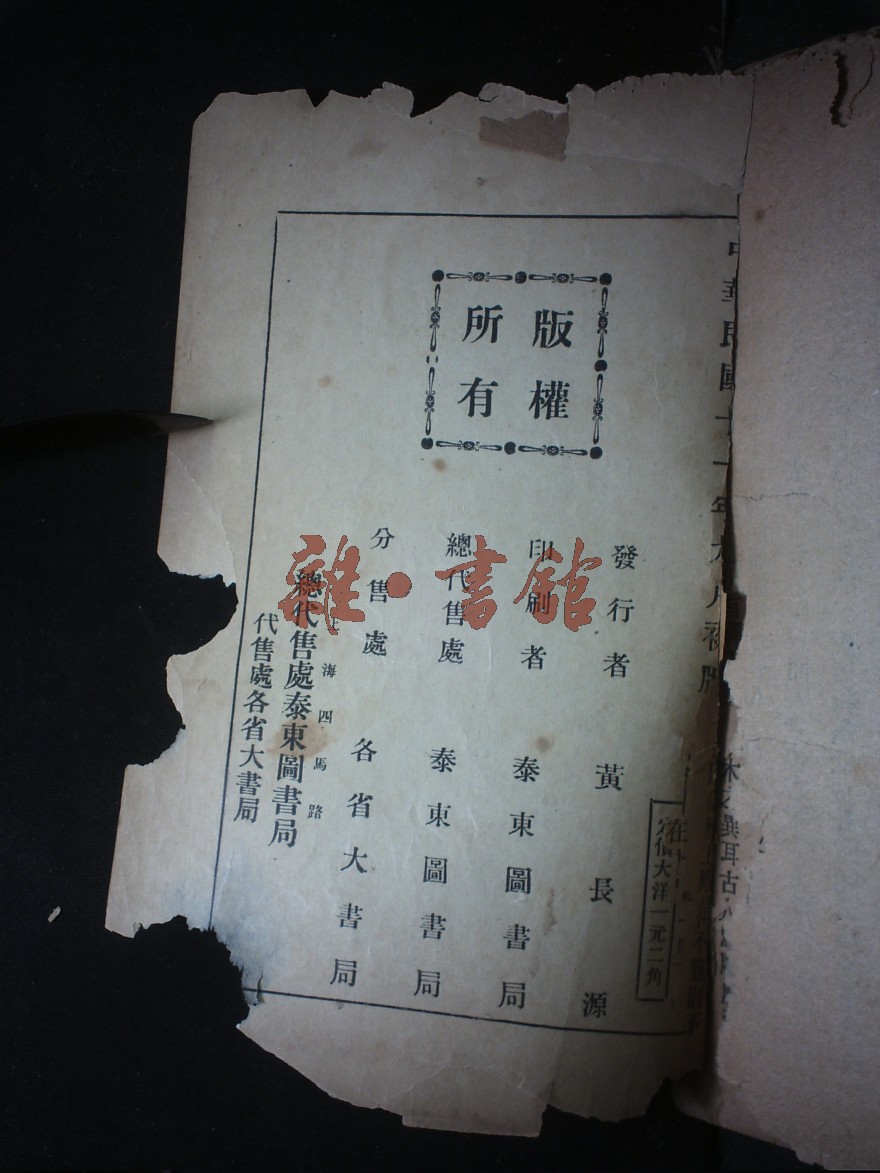 中華民國十一年九月初版
定價大洋一元二角
版權
所有
發行者 黃長源
印刷者 泰東圖書局
總代售處 泰東圖書局
分售處 各省大書局
上海四馬路
總代售處泰東圖書局
代售處各省大書局
雜·書館